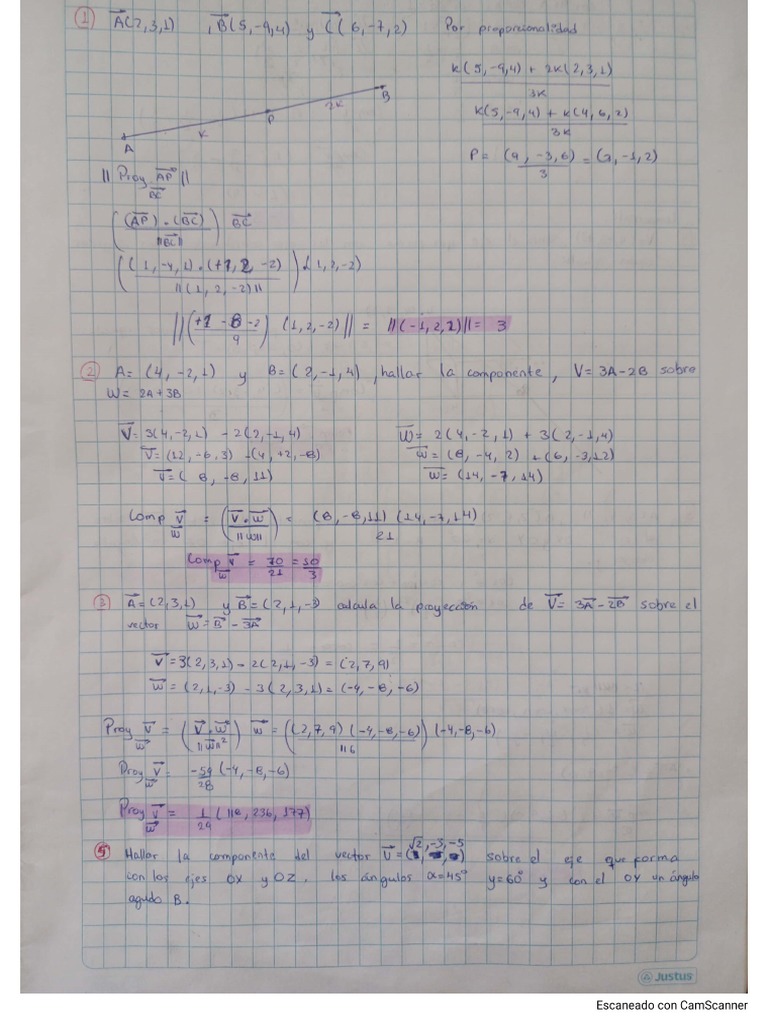 ① A⃗(2,3,1) , B⃗(5,-9,4) y C⃗(6,-7,2) Por proporcionalidad
k(5,-9,4) + 2k(2,3,1)
3k
k(5,-9,4) + k(4,6,2)
3k
P = (9, -3, 6) = (3, -1, 2)
3
A k P 2k B
|| Proy AP⃗ ||
BC⃗
((AP⃗) . (BC⃗)) BC⃗
||BC⃗||
((1, -4, 1) . (+1, 2, -2)) . (1, 2, -2)
||(1, 2, -2)||
||(+1 - 8 - 2) (1, 2, -2)|| = ||(-1, 2, 2)|| = 3
9
② A = (4, -2, 1) y B = (2, -1, 4) , hallar la componente, V = 3A - 2B sobre
W = 2A + 3B
V⃗ = 3(4, -2, 1) - 2(2, -1, 4)
V⃗ = (12, -6, 3) - (4, +2, -8)
V⃗ = (8, -8, 11)
W⃗ = 2(4, -2, 1) + 3(2, -1, 4)
W⃗ = (8, -4, 2) + (6, -3, 12)
W⃗ = (14, -7, 14)
Comp V⃗ = (V⃗ . W⃗) = (8, -8, 11) (14, -7, 14)
W⃗ ||W|| 21
Comp V⃗ = 70 = 10
W⃗ 21 3
③ A⃗ = (2,3,1) y B⃗ = (2,1,-3) calcula la proyección de V⃗ = 3A⃗ - 2B⃗ sobre el
vector W⃗ = B⃗ - 3A⃗
V⃗ = 3(2,3,1) - 2(2,1,-3) = (2,7,9)
W⃗ = (2,1,-3) - 3(2,3,1) = (-4,-8,-6)
Proy V⃗ = (V⃗ . W⃗) W⃗ = ((2,7,9) (-4,-8,-6)) (-4,-8,-6)
W⃗ ||W⃗||² 116
Proy V⃗ = -59 (-4,-8,-6)
W⃗ 28
Proy V⃗ = 1 (118, 236, 177)
W⃗ 29
⑤ Hallar la componente del vector V⃗ = (√2, -3, -5) sobre el eje que forma
con los ejes OX y OZ, los ángulos α=45° y=60° y con el OY un ángulo
agudo B.
Justus
Escaneado con CamScanner